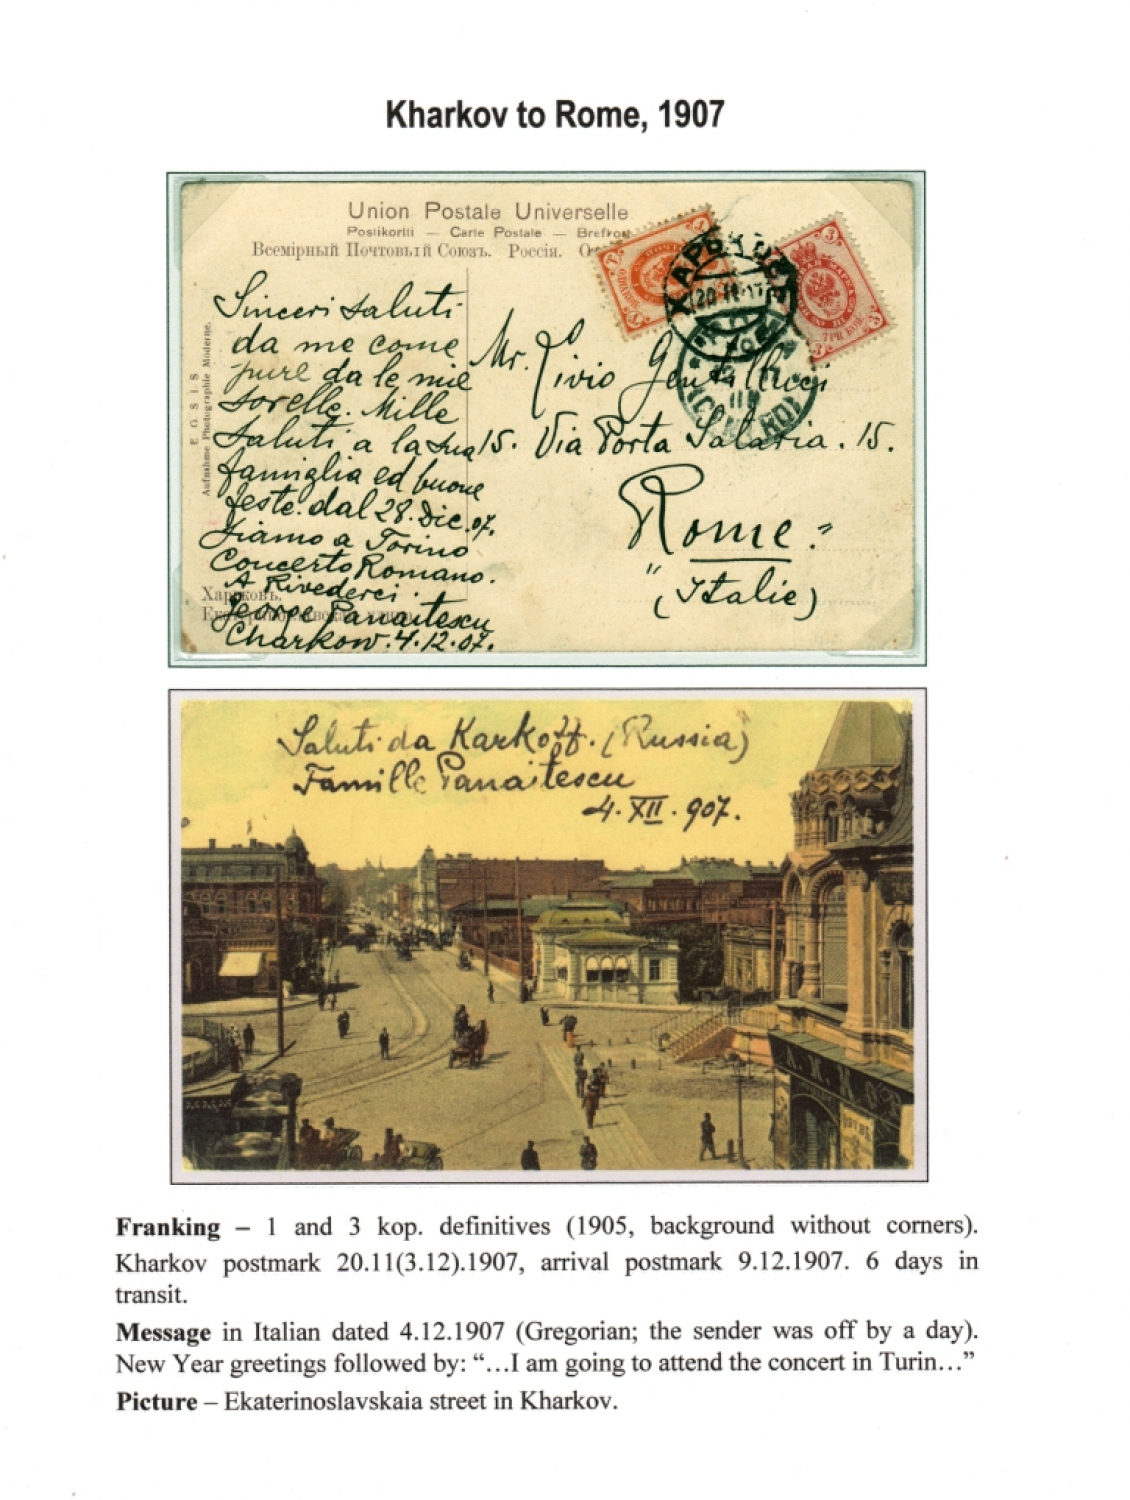 Kharkov to Rome, 1907
Union Postale Universelle
Postikortti — Carte Postale — Brefkor
Всемірный Почтовый Союзъ. Россія.
Sinceri saluti
da me come
pure da le mie
sorelle. Mille
saluti a la sua
famiglia ed buone
feste. dal 28. Dic. 07.
siamo a Torino
Concerto Romano.
A Rivederci.
George Panaitescu
Charkow. 4.12.07.
E. G. S. i. S.
Aufnahme Photographie Moderne.
Харьковъ.
Екатеринославская улица
ХАРЬКОВЪ
20.11.07
3
ТРИ КОП.
3
Mr. Livio Gentilucci
15. Via Porta Salaria. 15.
Rome."
" (Italie)
Saluti da Karkoff. (Russia)
Famille Panaitescu
4. XII. 907.
Franking – 1 and 3 kop. definitives (1905, background without corners).
Kharkov postmark 20.11(3.12).1907, arrival postmark 9.12.1907. 6 days in
transit.
Message in Italian dated 4.12.1907 (Gregorian; the sender was off by a day).
New Year greetings followed by: “…I am going to attend the concert in Turin…”
Picture – Ekaterinoslavskaia street in Kharkov.